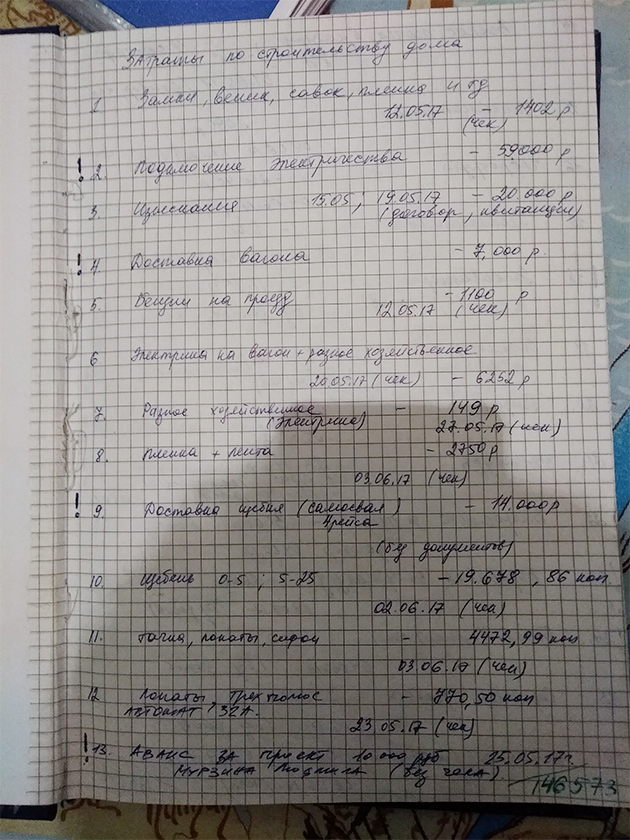 Затраты по строительству дома
1 Замки, веник, совок, пленка и тд
12.05.17 - 1402 р
(чек)
! 2. Подключение электричества - 59000 р
3. Изыскания 15.05; 19.05.17 - 20.000 р
(договор, квитанции)
! 4. Доставка вагона - 7,000 р.
5. Вещи на проезд - 1100 р
12.05.17 (чек)
6 Электрика на вагон + разное хозяйственное
20.05.17 (чек) - 6252 р
7. Разное хозяйственное - 149 р
(электрика) 27.05.17 (чек)
8. Пленка + лента - 2750 р
03.06.17 (чек)
! 9. Доставка щебня (самосвал) - 14.000 р
4 рейса
(без документов)
10. Щебень 0-5; 5-25 - 19.678, 86 коп.
02.06.17 (чек)
11. Тачка, лопаты, сифон - 4472,99 коп
03.06.17 (чек)
12 Лопаты, трехполюс - 770,50 коп
автомат, 32А.
23.05.17 (чек)
! 13. Аванс за проект 10 000 руб 25.05.17г.
Мурзина Людмила (без чека)
146573